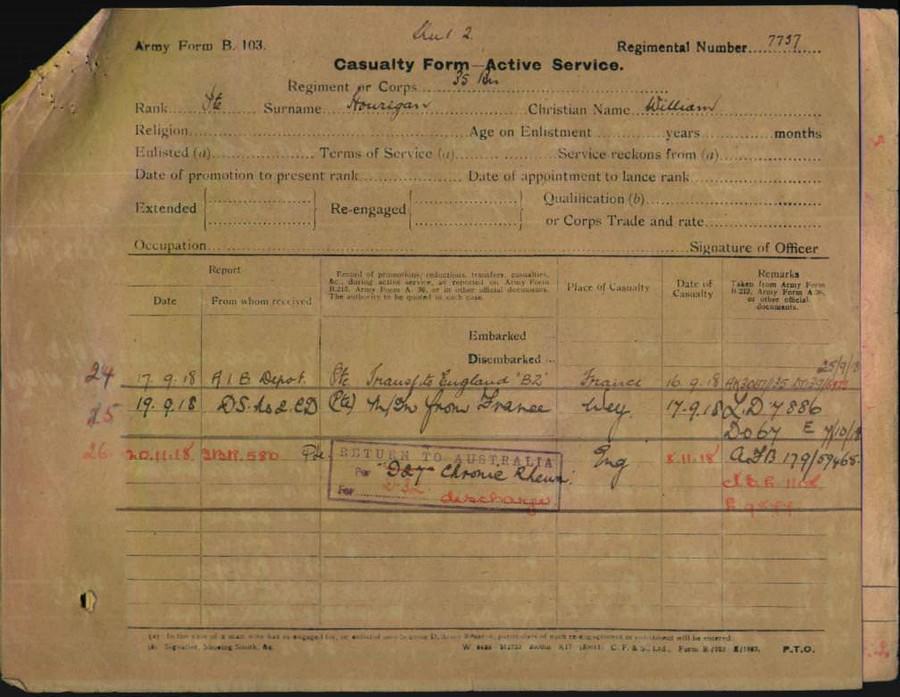 Army Form B. 103.
Regimental Number 7737
Casualty Form—Active Service.
Regiment or Corps 35 Bn
Rank Pte Surname Hourigan Christian Name William
Religion Age on Enlistment years months
Enlisted (a) Terms of Service (a) Service reckons from (a)
Date of promotion to present rank Date of appointment to lance rank
Extended Re-engaged Qualification (b)
or Corps Trade and rate
Occupation Signature of Officer
Report
Date From whom received
Record of promotions, reductions, transfers, casualties,
&c., during active service, as reported on Army Form
B.213, Army Form A. 36, or in other official documents.
The authority to be quoted in each case.
Place of Casualty
Date of
Casualty
Remarks
Taken from Army Form
B.213, Army Form A.36,
or other official
documents.
Embarked
Disembarked
25/9/18
24 17.9.18 A I B Depot. Pte Transf to England "B2" France 16.9.18
25 19.9.18 No 2 CD (Pte) M/In from France Wey 17.9.18 L.D 7886
Do 67 E 7/10/18
26 20.11.18 Pte RETURN TO AUSTRALIA Eng 8.11.18 AFB 179/59465
Per "D27" Chronic Rheum.
For discharge
(b) Signaller, Shoeing Smith, &c.
P.T.O.